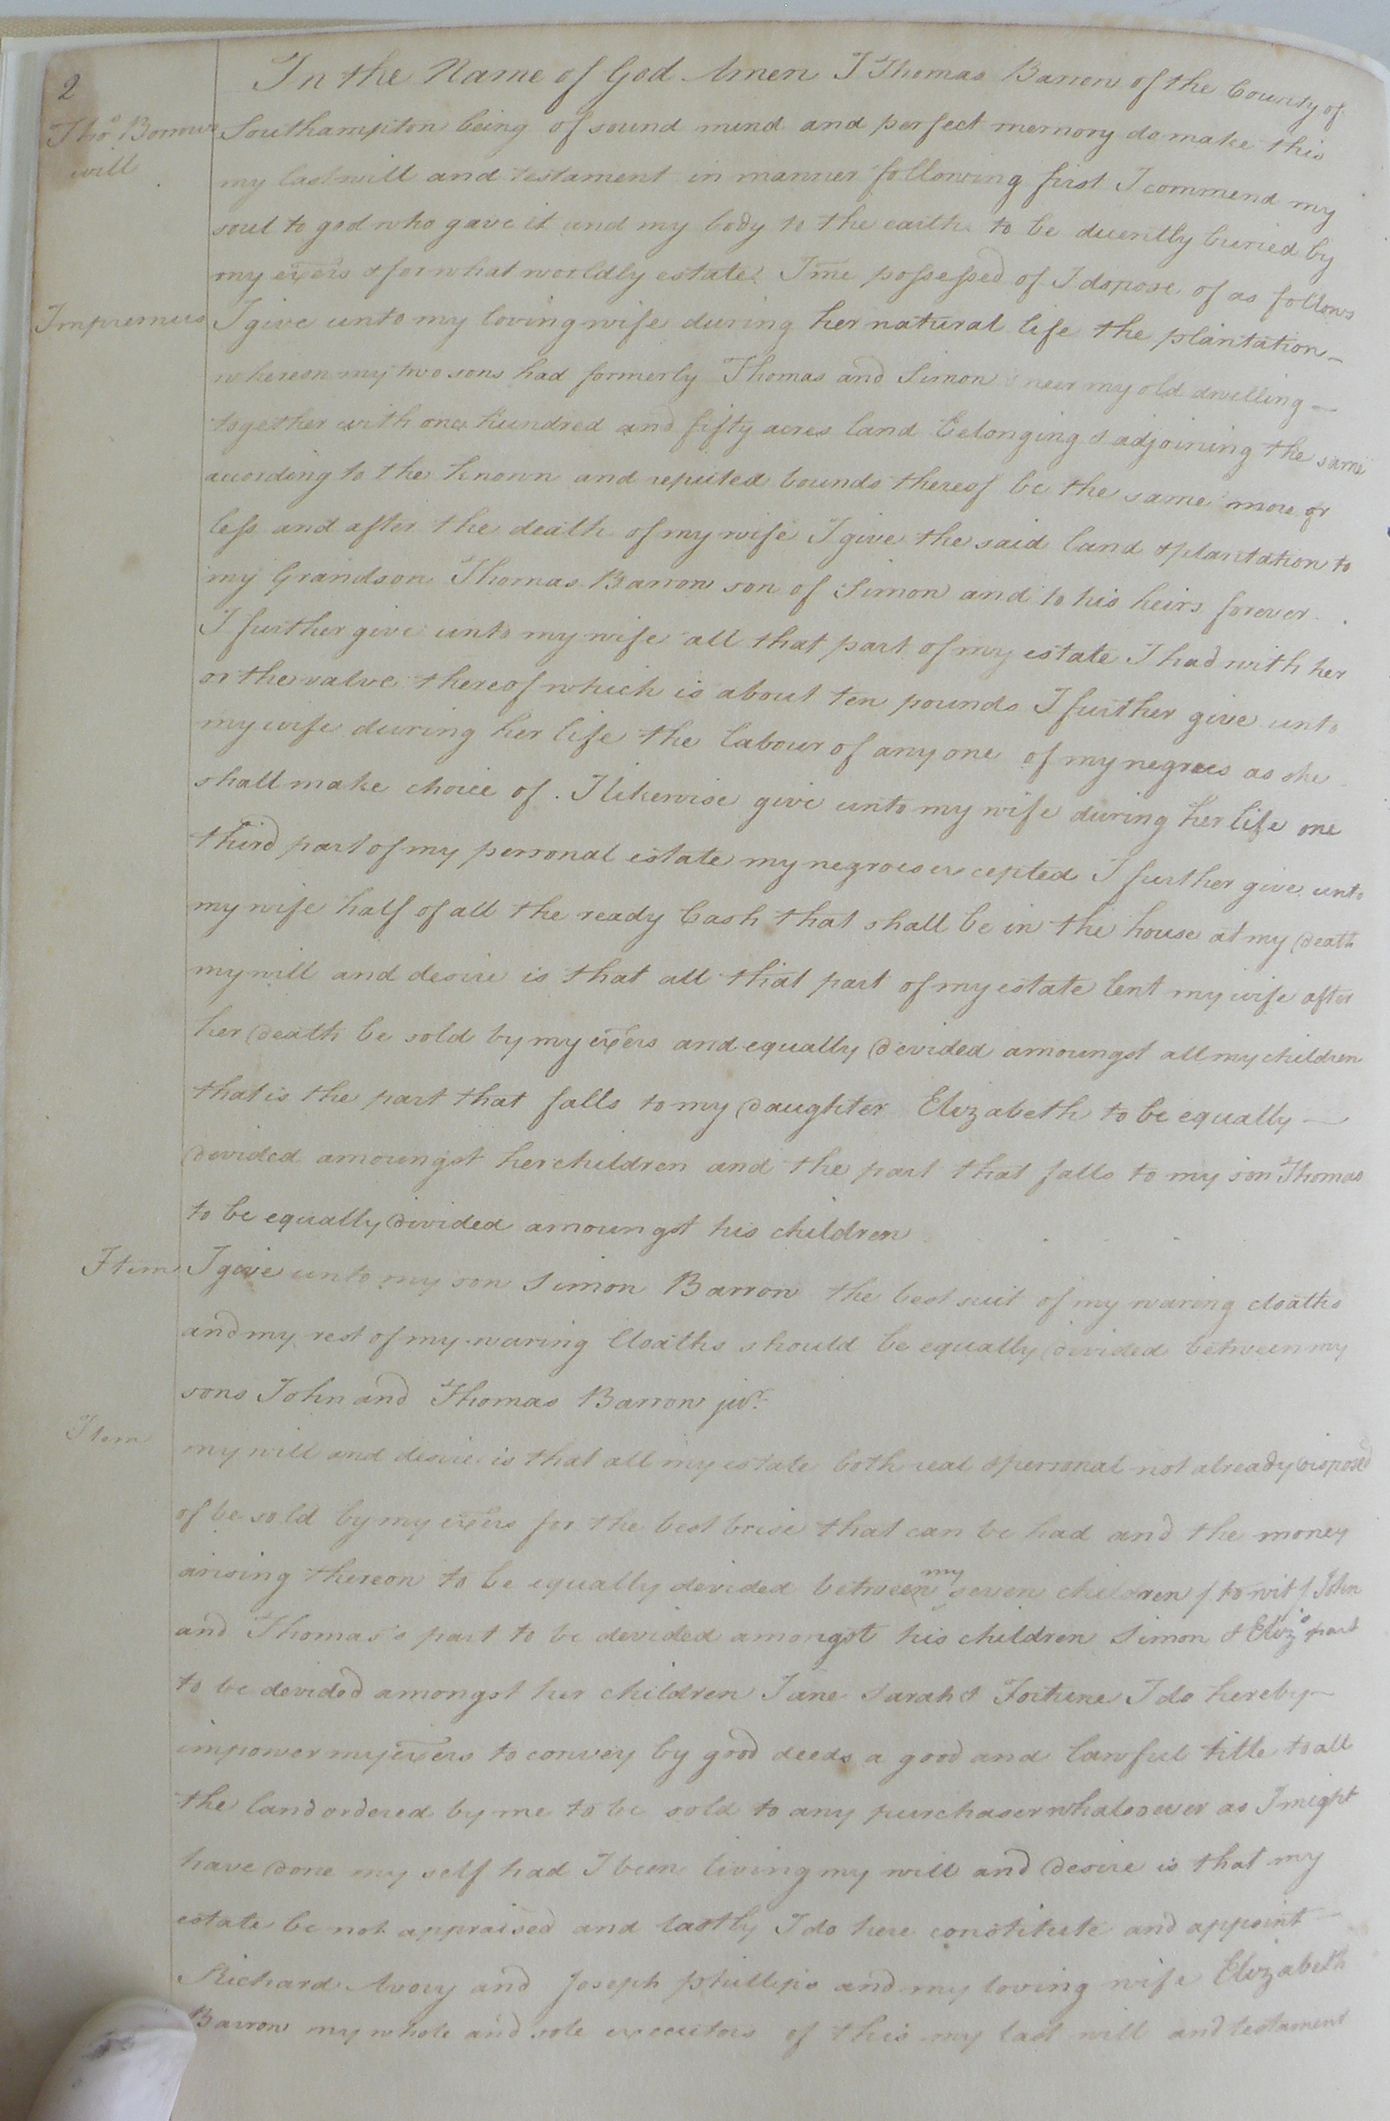 2
In the Name of God Amen I Thomas Barron of the County of
Thos. Borrow Southampton being of sound mind and perfect memory do make this
will my last will and testament in manner following first I commend my
soul to god who gave it and my body to the earth to be decently buried by
my exers & for what worldly estate I me possessed of I dspose of as follows
Impremus I give unto my loving wife during her natural life the plantation
whereon my two sons had formerly Thomas and Simon near my old dwelling
together with one hundred and fifty acres land belonging & adjoining the same
according to the known and reputed bounds thereof be the same more or
less and after the death of my wife I give the said land & plantation to
my Grandson Thomas Barrow son of Simon and to his heirs forever
I further give unto my wife all that part of my estate I had with her
or the value thereof which is about ten pounds I further give unto
my wife during her life the labour of any one of my negroes as she
shall make choice of. I likewise give unto my wife during her life one
third part of my personal estate my negroes excepted I further give unto
my wife half of all the ready Cash that shall be in the house at my death
my will and desire is that all that part of my estate lent my wife after
her death be sold by my exers and equally devided amoungst all my children
that is the part that falls to my daughter Elizabeth to be equally
devided amoungst her children and the part that falls to my son Thomas
to be equally divided amoungst his children
Item I give unto my son Simon Barron the best suit of my waring cloaths
and my rest of my waring Cloaths should be equally divided between my
sons John and Thomas Barrow jur.
Item my will and desire is that all my estate both real & personal not already disposed
of be sold by my exers for the best brise that can be had and the money
arising thereon to be equally devided between my seven children / to wit / John
and Thomas's part to be devided amongst his children Simon & Eliz's part
to be devided amongst her children Jane Sarah & Fortune I do hereby
impower my exers to convey by good deeds a good and lawful title to all
the land ordered by me to be sold to any purchaser whatsoever as I might
have done my self had I been living my will and desire is that my
estate be not appraised and lastly I do here constitute and appoint
Richard Avory and Joseph Phillips and my loving wife Elizabeth
Barrow my whole and sole executors of this my last will and testament